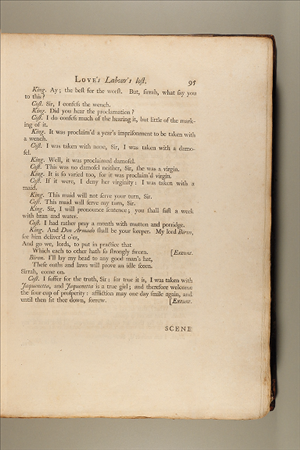 LOVE's Labour's lost. 95
King. Ay; the best for the worst. But, sirrah, what say you
to this?
Cost. Sir, I confess the wench.
King. Did you hear the proclamation?
Cost. I do confess much of the hearing it, but little of the mark-
ing of it.
King. It was proclaim'd a year's imprisonment to be taken with
a wench.
Cost. I was taken with none, Sir, I was taken with a damo-
sel.
King. Well, it was proclaimed damosel.
Cost. This was no damosel neither, Sir, she was a virgin.
King. It is so varied too, for it was proclaim'd virgin.
Cost. If it were, I deny her virginity: I was taken with a
maid.
King. This maid will not serve your turn, Sir.
Cost. This maid will serve my turn, Sir.
King. Sir, I will pronounce sentence; you shall fast a week
with bran and water.
Cost. I had rather pray a month with mutton and porridge.
King. And Don Armado shall be your keeper. My lord Biron,
see him deliver'd o'er,
And go we, lords, to put in practice that
Which each to other hath so strongly sworn. [Exeunt.
Biron. I'll lay my head to any good man's hat,
These oaths and laws will prove an idle scorn.
Sirrah, come on.
Cost. I suffer for the truth, Sir: for true it is, I was taken with
Jaquenetta, and Jaquenetta is a true girl; and therefore welcome
the sour cup of prosperity: affliction may one day smile again, and
until then sit thee down, sorrow. [Exeunt.
SCENE